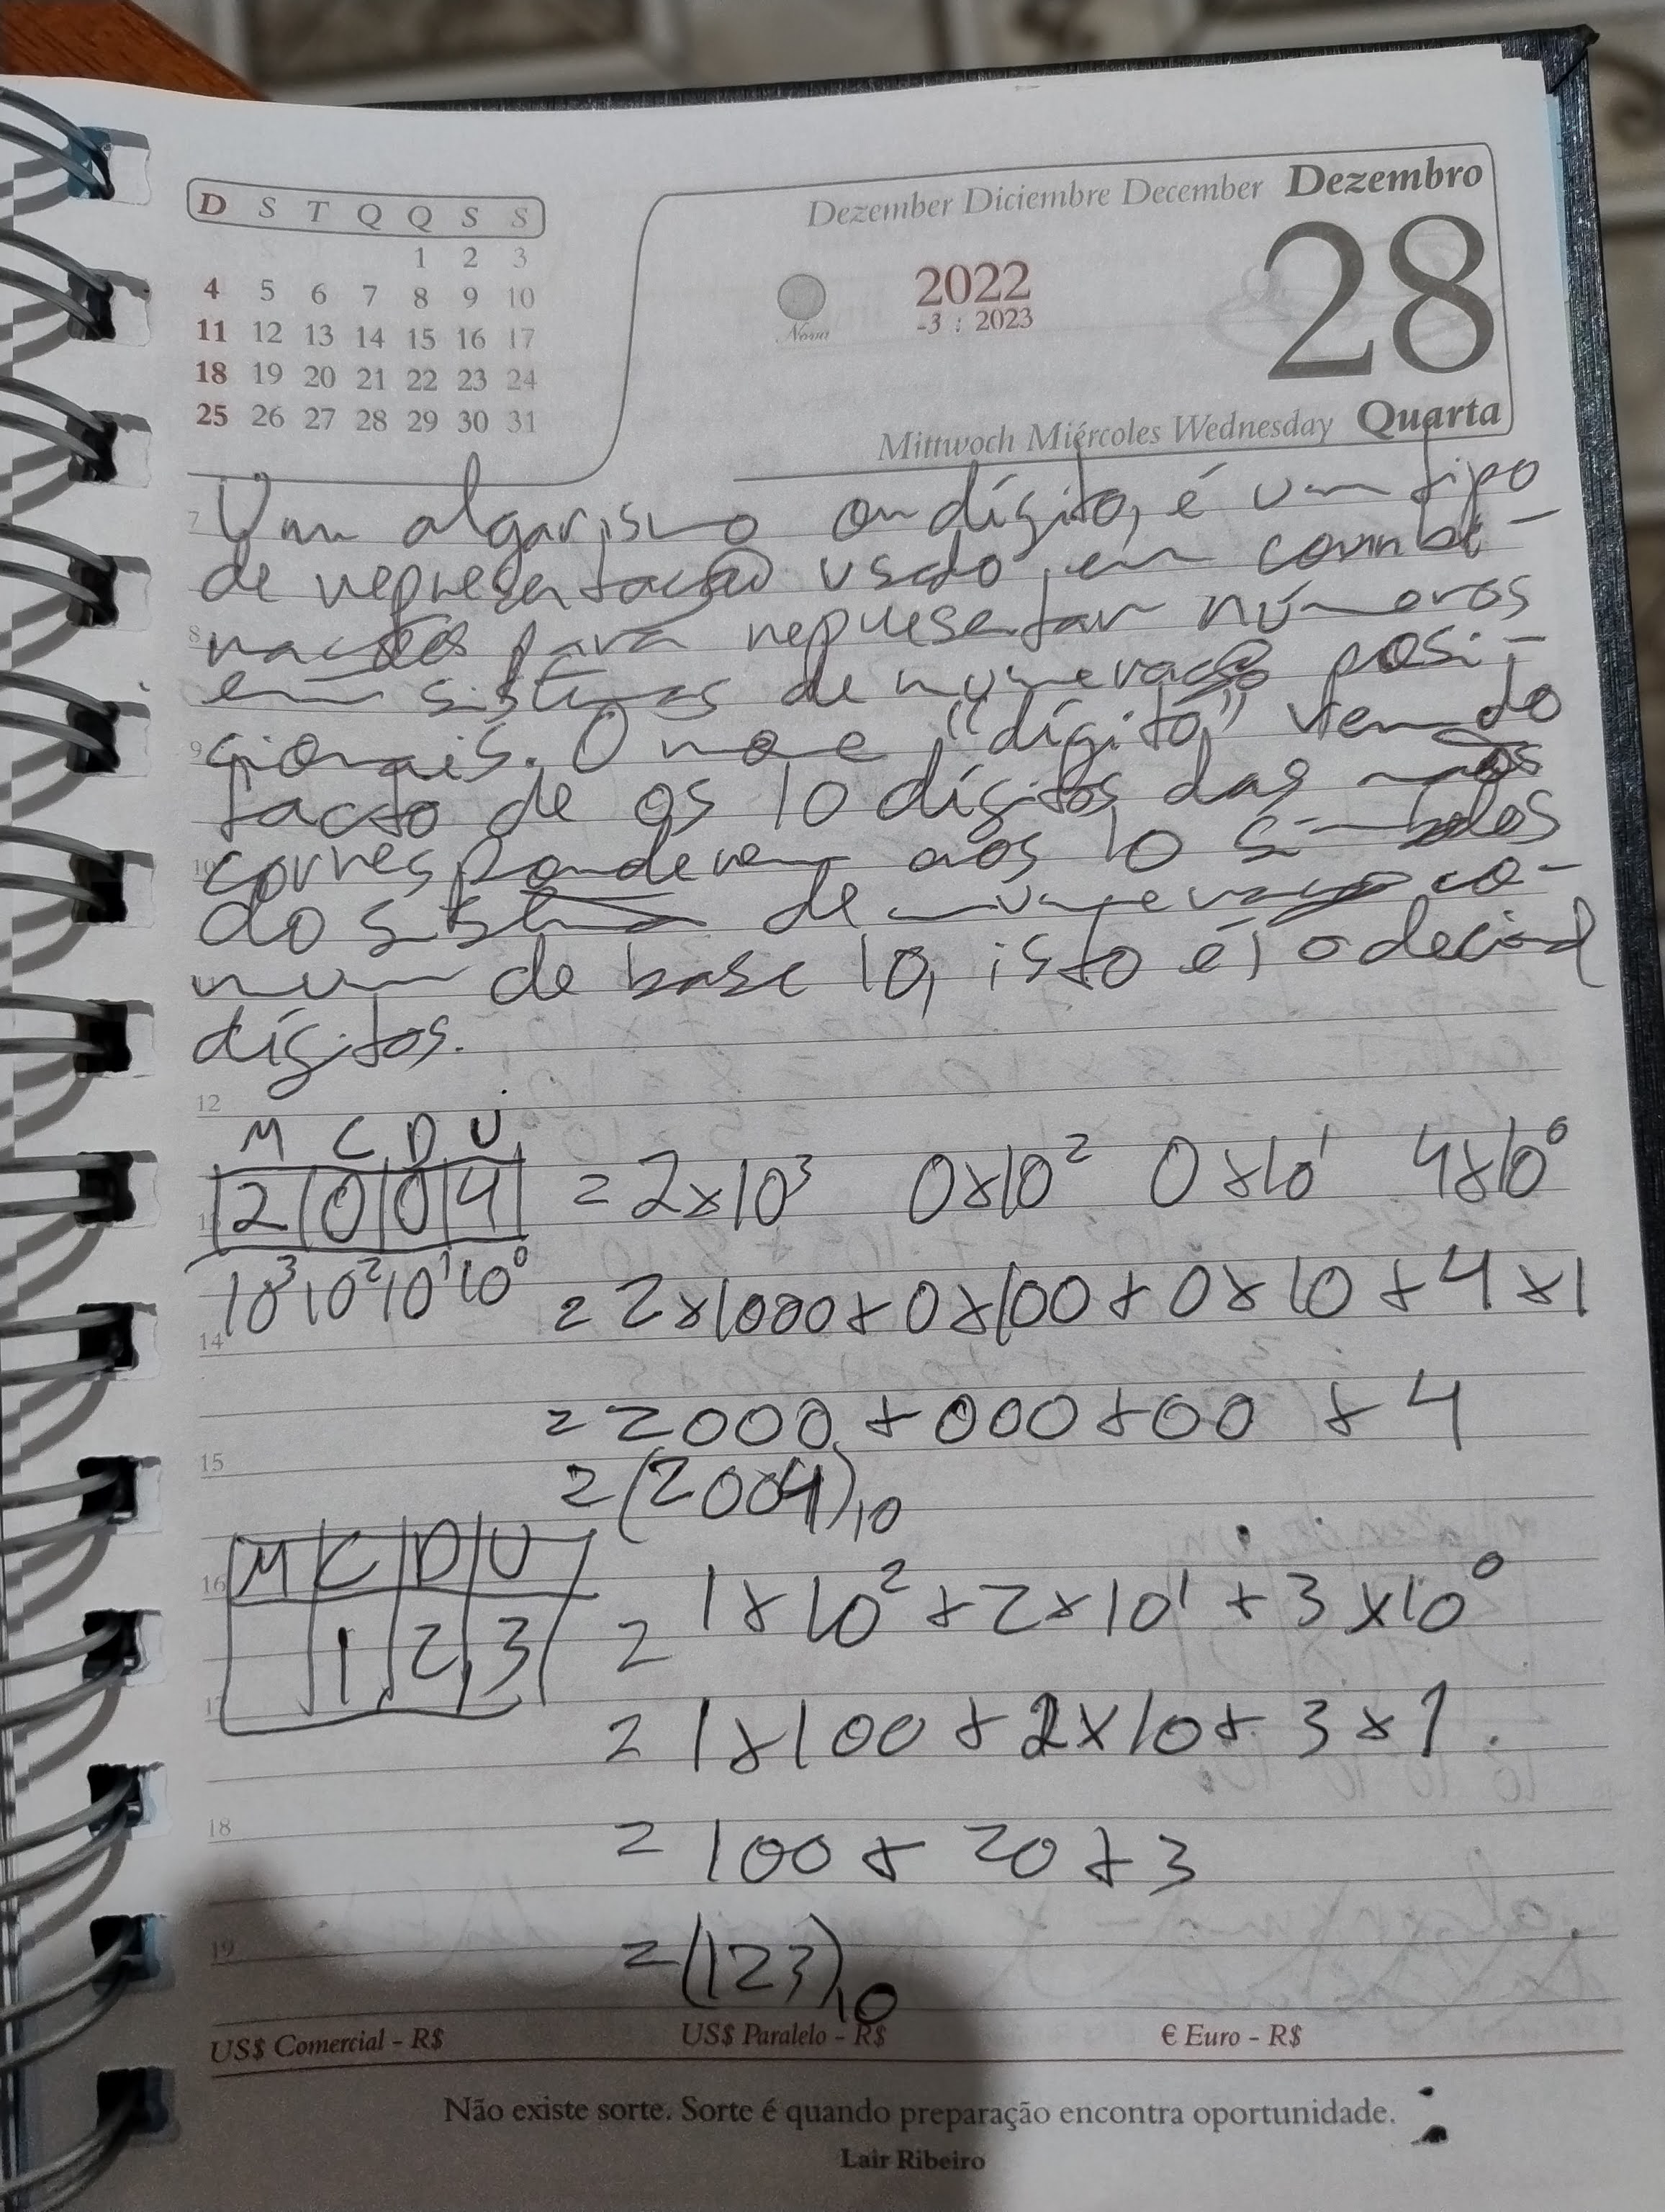 D S T Q Q S S
1 2 3
4 5 6 7 8 9 10
11 12 13 14 15 16 17
18 19 20 21 22 23 24
25 26 27 28 29 30 31
Dezember Diciembre December Dezembro
28
Nova
2022
-3 : 2023
Mittwoch Miércoles Wednesday Quarta
7
Um algarismo ou dígito, é um tipo
de representação usado em combi-
8
nações para representar números
em sistemas de numeração posi-
9
cionais. O nome "dígito" vem do
facto de os 10 dígitos das mãos
10
corresponderem aos 10 símbolos
do sistema de numeração co-
mum de base 10, isto é, o decimal
dígitos.
12
M C D U
2 0 0 4 = 2x10³ 0x10² 0x10¹ 4x10⁰
10³ 10² 10¹ 10⁰ = 2x1000+0x100+0x10+4x1
14
= 2000 + 000+00 + 4
15
= (2004)₁₀
M C D U
16
1 2 3 = 1x10²+2x10¹+3x10⁰
17
= 1x100+2x10+3x1
18
= 100+20+3
19
= (123)₁₀
US$ Comercial - R$ US$ Paralelo - R$ € Euro - R$
Não existe sorte. Sorte é quando preparação encontra oportunidade.
Lair Ribeiro